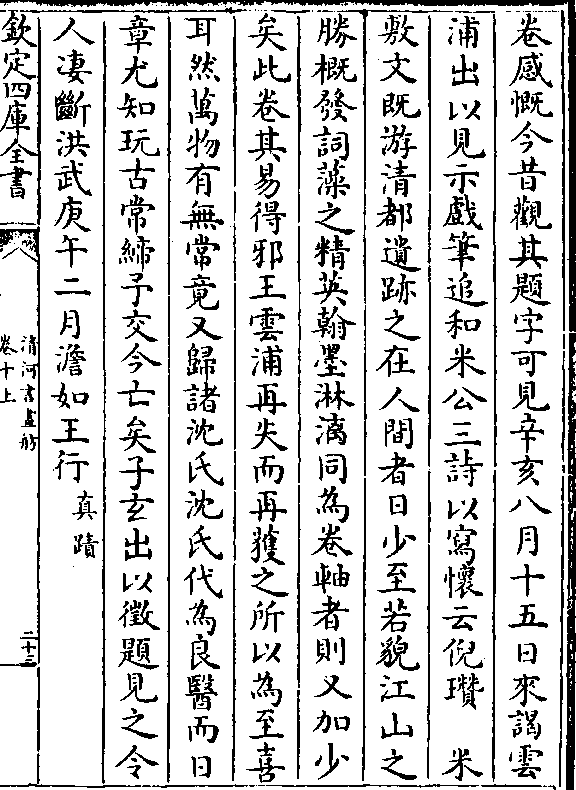 卷感慨今昔觀其題字可見辛亥八月十五日來謁雲
浦出以見示戲筆追和米公三詩以寫懷云倪瓚　米
敷文既游清都遺跡之在人間者日少至若貌江山之
勝概發詞藻之精英翰墨淋漓同為卷軸者則又加少
矣此卷其易得邪王雲浦再失而再獲之所以為至喜
耳然萬物有無常竟又歸諸沈氏沈氏代為良醫而日
章尤知玩古常締予交今亡矣子玄出以徵題見之令
人凄斷洪武庚午二月澹如王行真蹟
欽定四庫全書
清河書畫舫
卷十上
二十三